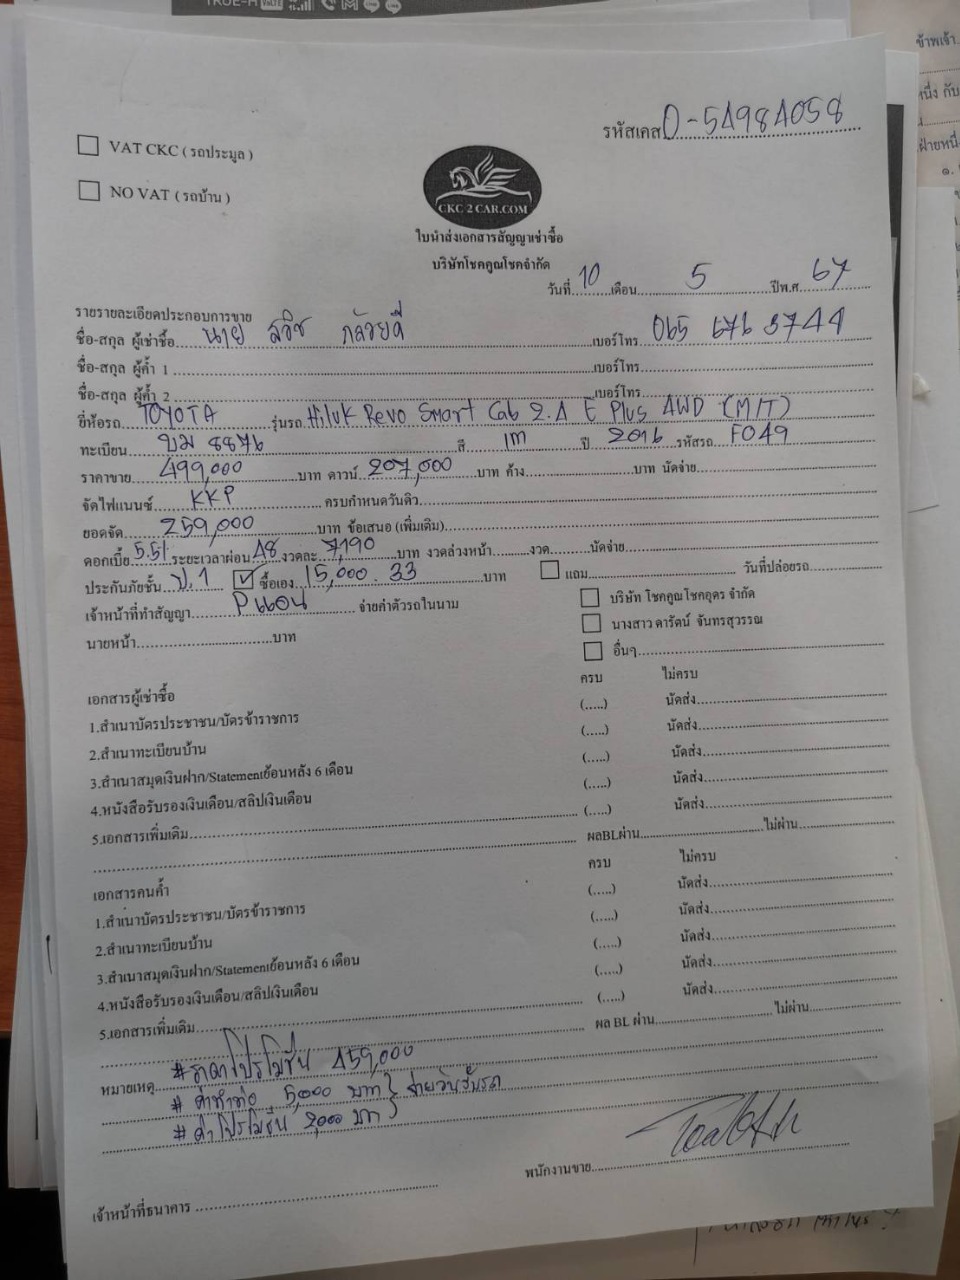 TRUE-H VoLTE
รหัสเคส 0-54984058
VAT CKC ( รถประมูล )
NO VAT ( รถบ้าน )
CKC 2 CAR.COM
ใบนำส่งเอกสารสัญญาเช่าซื้อ
บริษัทโชคคูณโชคจำกัด
วันที่ 10 เดือน 5 ปีพ.ศ. 67
รายรายละเอียดประกอบการขาย
ชื่อ-สกุล ผู้เช่าซื้อ นาย เบอร์โทร 065 676 3744
ชื่อ-สกุล ผู้ค้ำ 1 เบอร์โทร
ชื่อ-สกุล ผู้ค้ำ 2 เบอร์โทร
ยี่ห้อรถ TOYOTA รุ่นรถ Hilux Revo Smart Cab 2.4 E Plus 4WD (M/T)
ทะเบียน บม 8876 สี เทา ปี 2016 รหัสรถ F049
ราคาขาย 499,000 บาท ดาวน์ 207,000 บาท ค้าง บาท นัดจ่าย
จัดไฟแนนซ์ KKP ครบกำหนดวันคิว
ยอดจัด 259,000 บาท ข้อเสนอ (เพิ่มเติม)
ดอกเบี้ย 5.51 ระยะเวลาผ่อน 48 งวดละ 7,190 บาท งวดล่วงหน้า งวด นัดจ่าย
ประกันภัยชั้น ป.1 ซื้อเอง 15,000.33 บาท แถม วันที่ปล่อยรถ
เจ้าหน้าที่ทำสัญญา Pแอน จ่ายค่าตัวรถในนาม บริษัท โชคคูณโชคอุดร จำกัด
นางสาว ดารัตน์ จันทรสุวรรณ
นายหน้า บาท อื่นๆ
เอกสารผู้เช่าซื้อ ครบ ไม่ครบ
1.สำเนาบัตรประชาชน/บัตรข้าราชการ (.....) นัดส่ง
2.สำเนาทะเบียนบ้าน (.....) นัดส่ง
3.สำเนาสมุดเงินฝาก/Statementย้อนหลัง 6 เดือน (.....) นัดส่ง
4.หนังสือรับรองเงินเดือน/สลิปเงินเดือน (.....) นัดส่ง
5.เอกสารเพิ่มเติม (.....) นัดส่ง
ผลBLผ่าน ไม่ผ่าน
เอกสารคนค้ำ ครบ ไม่ครบ
1.สำเนาบัตรประชาชน/บัตรข้าราชการ (.....) นัดส่ง
2.สำเนาทะเบียนบ้าน (.....) นัดส่ง
3.สำเนาสมุดเงินฝาก/Statementย้อนหลัง 6 เดือน (.....) นัดส่ง
4.หนังสือรับรองเงินเดือน/สลิปเงินเดือน (.....) นัดส่ง
5.เอกสารเพิ่มเติม (.....) นัดส่ง
ผล BL ผ่าน ไม่ผ่าน
หมายเหตุ #ราคาโปรโมชั่น 459,000
# 5,000 บาท } จ่ายวันรับรถ
# ค่าโปรโมชั่น 2,000 บาท
พนักงานขาย
เจ้าหน้าที่ธนาคาร